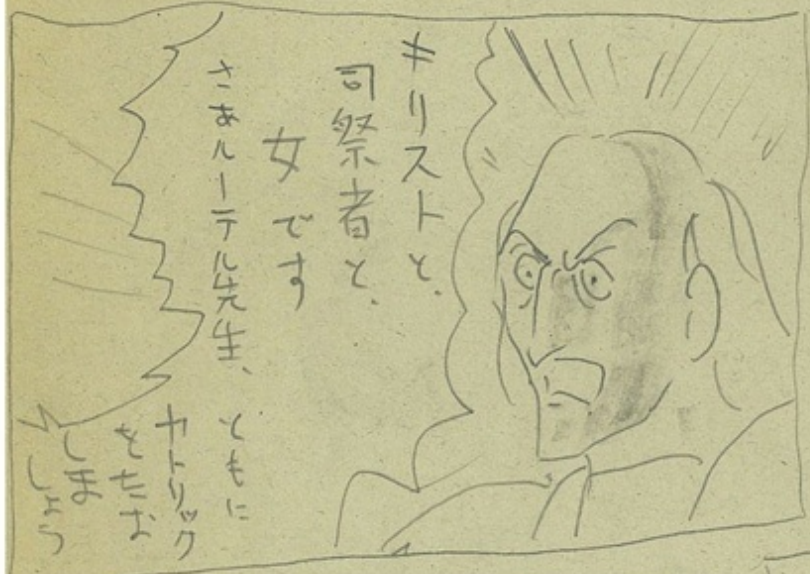 キリストと、
司祭者と、
女です
さあルーテル先生、ともに
カトリック
をたお
しま
しょう